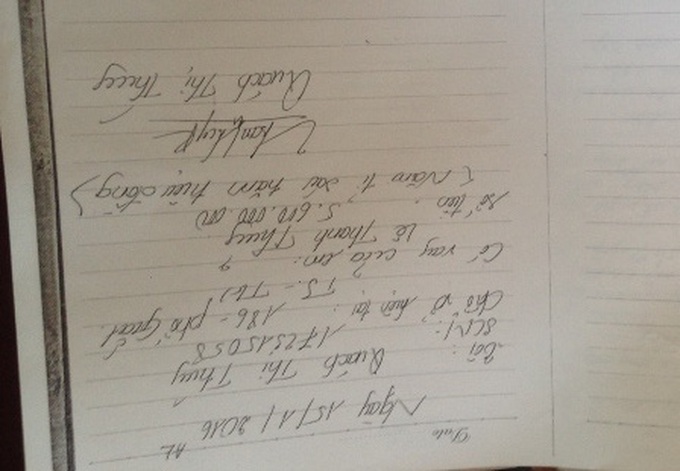 Date
Ngày 15/1/2016 AL
Tôi: Quách Thị Thuý
SCM: 172315058
Chỗ ở hiện tại: 186 - phố
TS - TH)
Có vay của em:
Lê Thanh Thuỷ
số tiền: 5.600.000.000
(Năm tỉ sáu trăm triệu đồng)
Quách Thị Thuý